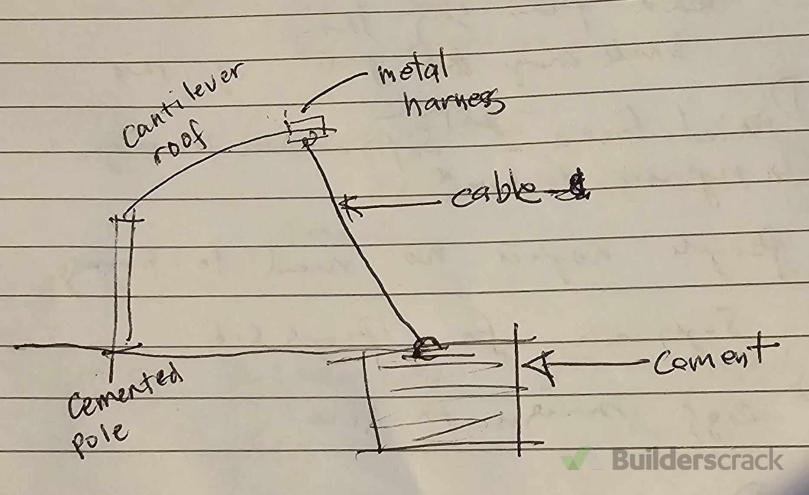 metal
harness
cantilever
roof
cable
cement
cemented
pole
Builderscrack